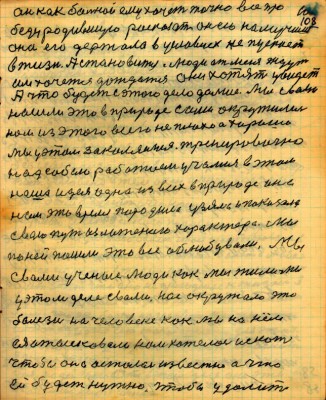 он как больной ему хочет точно все это
108
безродившую раскозат он сь на лучший
она его держала в условиях не пускает
в жизнь Астановить. Люди от меня ждут
им хочется дождатся они хотят увидет
А что будет с этого дело дальше. Мы с вами
нашли это в природе сами окружили
нам из этого всего не плохо а хорошо
мы у этом закаляемся тренировично
над собою работаем учимся в этом
наша идея одна из всех в природе она
нам это время породила узялась показала
свой путь изложенного характера. Мы
по ней пошли это все облюбували. Мы
с вами ученые люди как мы жили мы
у этом деле с вами, нас окружало это
болезнь на человеке как мы на нём
нам хотелос искат
чтобы она осталас известно а что
ей будет нужно, чтобы удалит